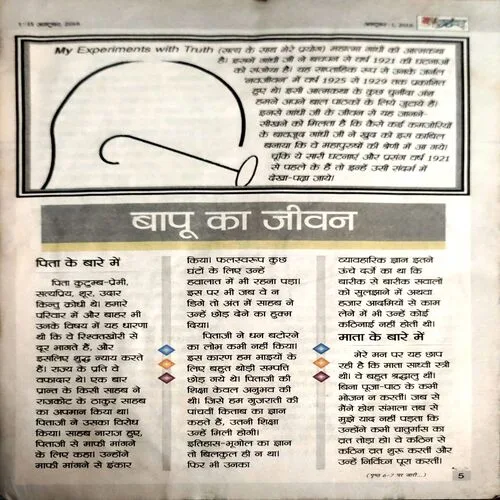 1-15 अक्टूबर, 2016
अक्टूबर-1, 2016
My Experiments with Truth (सत्य के साथ मेरे प्रयोग) महात्मा गांधी की आत्मकथा
है। इसमें गांधी जी ने बचपन से वर्ष 1921 की घटनाओं
को संजोया है। यह साप्ताहिक रूप से उनके जर्नल
'नवजीवन' में वर्ष 1925 से 1929 तक प्रकाशित
हुए थे। इसी आत्मकथा के कुछ चुनींदा अंश
हमने अपने बाल पाठकों के लिये जुटाये हैं।
इनसे गांधी जी के जीवन से यह जानने-
सीखने को मिलता है कि कैसे कई कमजोरियों
के बावजूद गांधी जी ने खुद को इस काबिल
बनाया कि वे महापुरुषों की श्रेणी में आ गये।
चूंकि ये सारी घटनाएं और प्रसंग वर्ष 1921
से पहले के हैं तो इन्हें उसी संदर्भ में
देखा-पढ़ा जाये।
बापू का जीवन
पिता के बारे में
पिता कुटुम्ब-प्रेमी,
सत्यप्रिय, शूर, उदार
किन्तु क्रोधी थे। हमारे
परिवार में और बाहर भी
उनके विषय में यह धारणा
थी कि वे रिश्वतखोरी से
दूर भागते हैं, और
इसलिए शुद्ध न्याय करते
हैं। राज्य के प्रति वे
वफादार थे। एक बार
प्रान्त के किसी साहब ने
राजकोट के ठाकुर साहब
का अपमान किया था।
पिताजी ने उसका विरोध
किया। साहब नाराज हुए,
पिताजी से माफी मांगने
के लिए कहा। उन्होंने
माफी मांगने से इंकार
किया। फलस्वरूप कुछ
घंटों के लिए उन्हें
हवालात में भी रहना पड़ा।
इस पर भी जब वे न
डिगे तो अंत में साहब ने
उन्हें छोड़ देने का हुक्म
दिया।
पिताजी ने धन बटोरने
का लोभ कभी नहीं किया।
इस कारण हम भाइयों के
लिए बहुत थोड़ी सम्पत्ति
छोड़ गये थे। पिताजी की
शिक्षा केवल अनुभव की
थी। जिसे हम गुजराती की
पांचवीं किताब का ज्ञान
कहते हैं, उतनी शिक्षा
उन्हें मिली होगी।
इतिहास-भूगोल का ज्ञान
तो बिलकुल ही न था।
फिर भी उनका
व्यावहारिक ज्ञान इतने
ऊंचे दर्जे का था कि
बारीक से बारीक सवालों
को सुलझाने में अथवा
हजार आदमियों से काम
लेने में भी उन्हें कोई
कठिनाई नहीं होती थी।
माता के बारे में
मेरे मन पर यह छाप
रही है कि माता साध्वी स्त्री
थी। वे बहुत श्रद्धालु थीं।
बिना पूजा-पाठ के कभी
भोजन न करतीं। जब से
मैंने होश संभाला तब से
मुझे याद नहीं पड़ता कि
उन्होंने कभी चातुर्मास का
व्रत तोड़ा हो। वे कठिन से
कठिन व्रत शुरू करतीं और
उन्हें निर्विघ्न पूरा करतीं।
(पृष्ठ 6-7 पर जारी...)
5